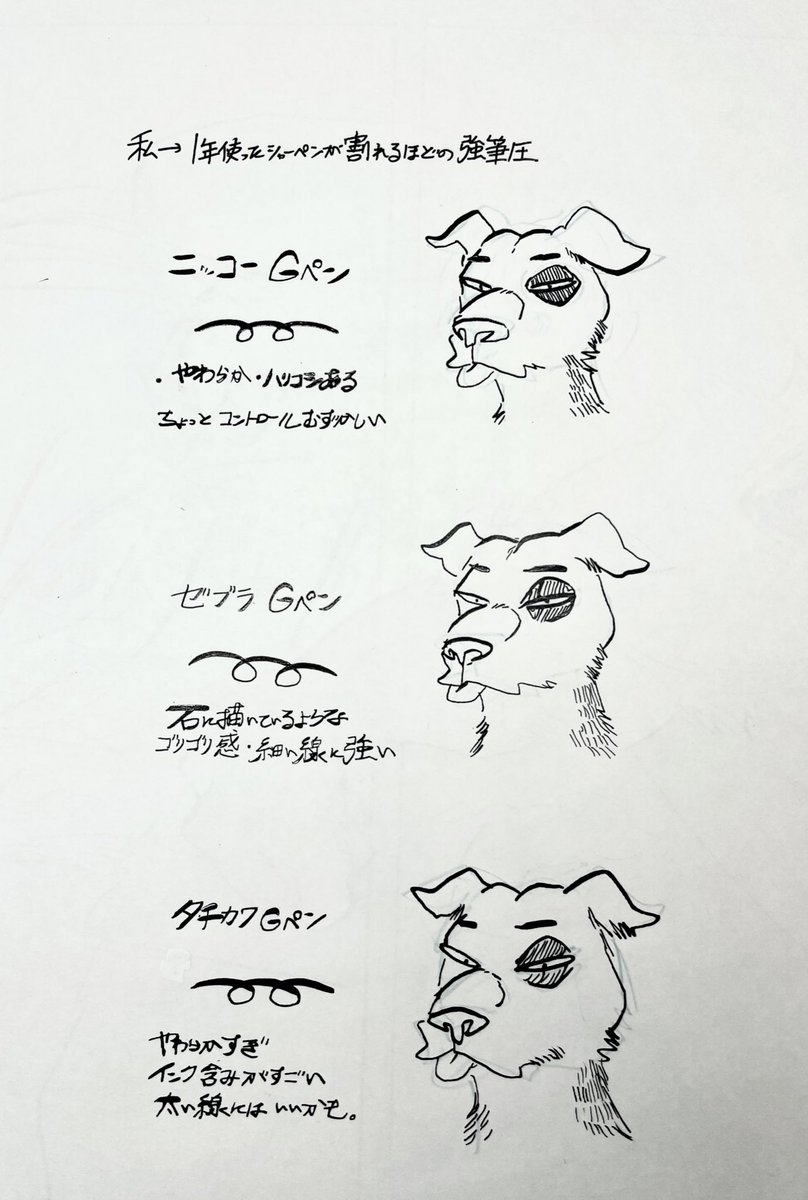 私→1年使ったシャーペンが割れるほどの強筆圧
ニッコー Gペン
・やわらか・ハリコシある
ちょっとコントロールむずかしい
ゼブラ Gペン
石に描いているような
ゴリゴリ感・細い線に強い
タチカワGペン
やわらかすぎ
インク含みがすごい
太い線にはいいかも。